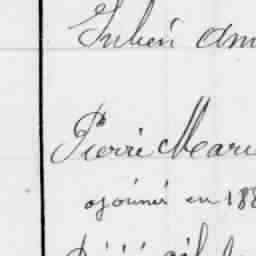 Julien Am
Pierre Marie
ajourné en 188